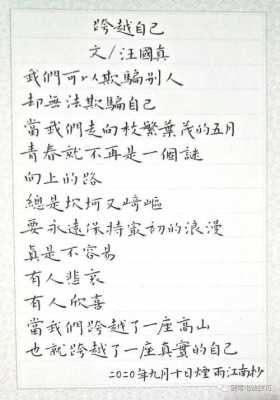 跨越自己
文/汪國真
我們可以欺騙别人
却無法欺騙自己
當我們走向枝繁葉茂的五月
青春就不再是一個謎
向上的路
總是坎坷又崎嶇
要永遠保持最初的浪漫
真是不容易
有人悲哀
有人欣喜
當我們跨越了一座高山
也就跨越了一座真實的自己
2020年九月十日煙雨江南抄